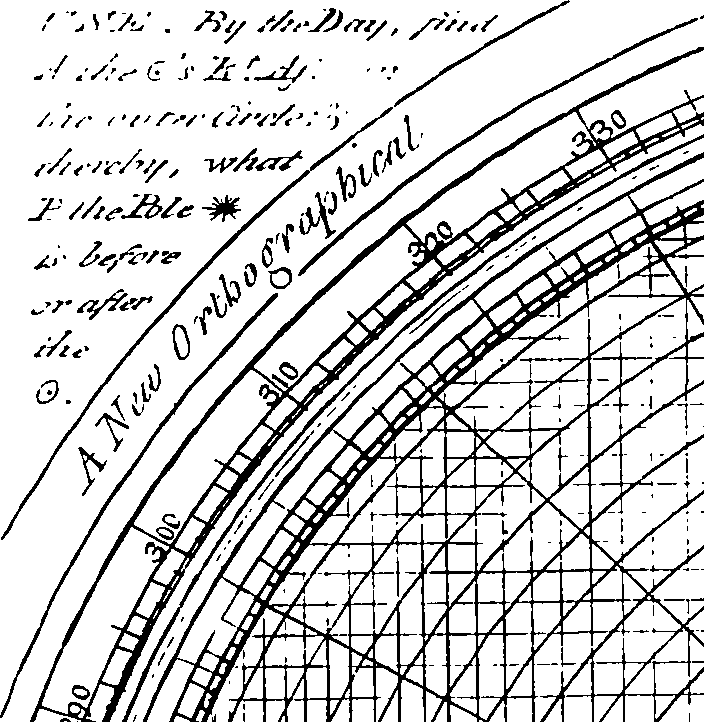 By the Day, find
the ☉'s
the outer Circle
thereby, what
P the Pole ✷
is before
or after
the
☉.
A New Orthographical
330
320
310
300